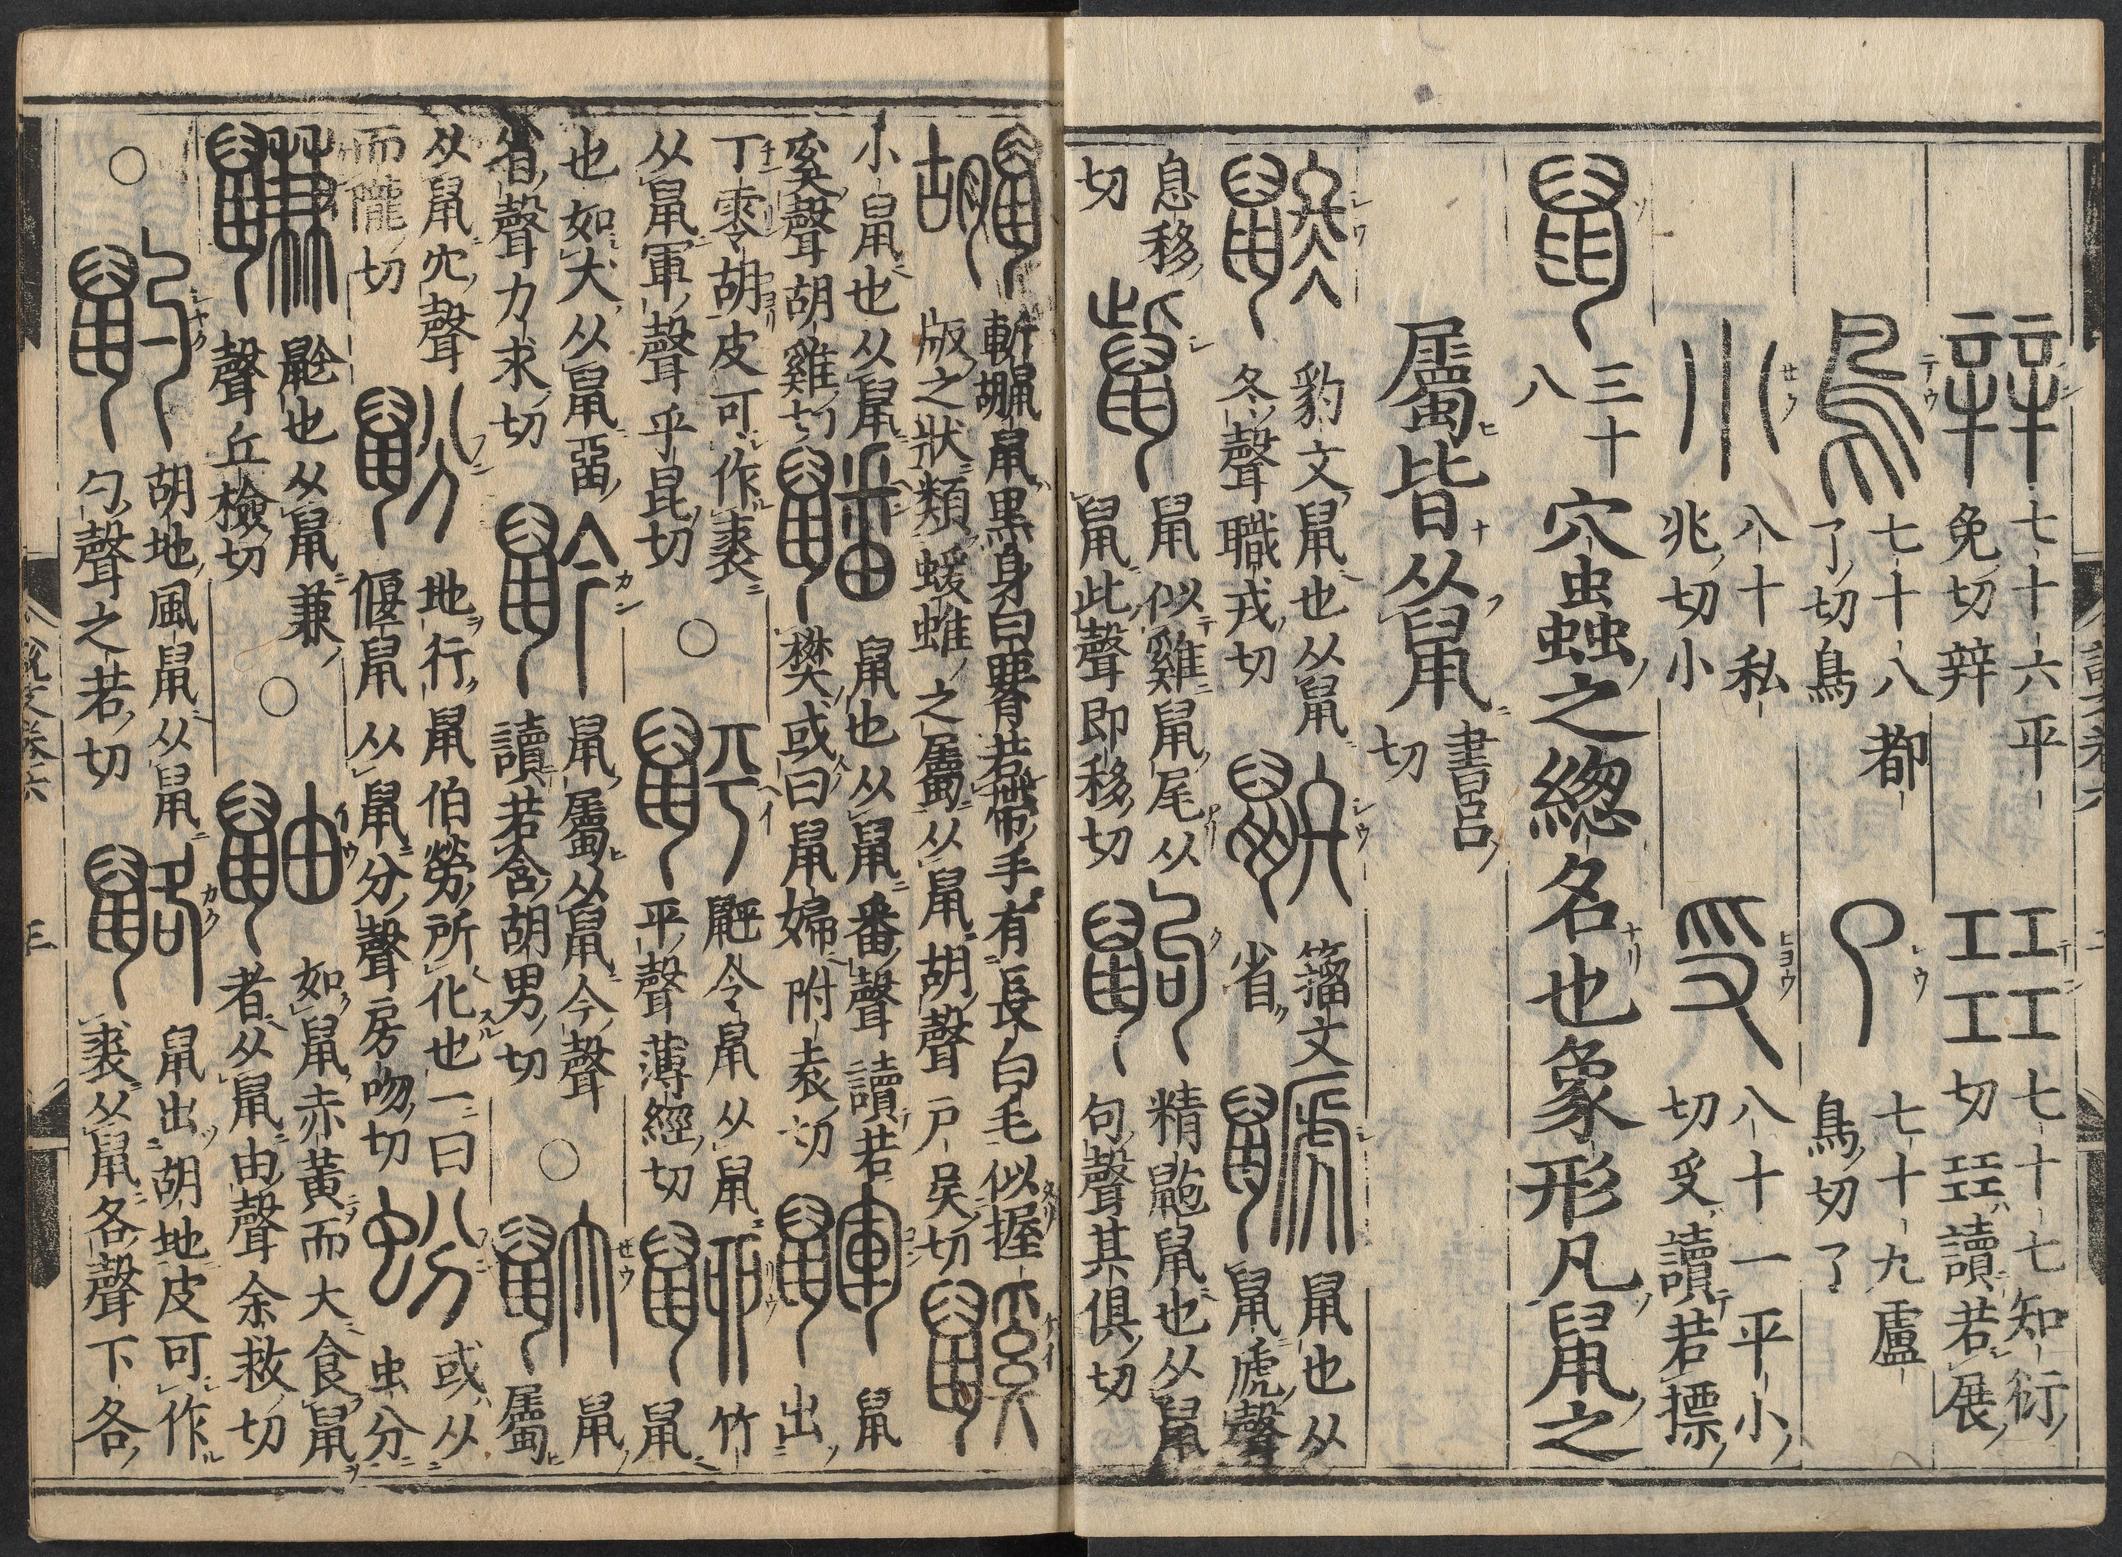 辡 七十六平免切辡 㠭 七十七知衍切㠭讀若展
鳥 七十八都了切鳥 了 七十九盧鳥切了
小 八十私兆切小 𠬪 八十一平小切𠬪讀若摽
鼠 三十八 穴蟲之總名也象形凡鼠之
屬皆从鼠 書呂切
鼨 豹文鼠也从鼠冬聲職戎切 籀文省 鼶 鼠也从鼠虒聲
息移切 鼠似雞鼠尾从鼠此聲即移切 鼩 精䶂鼠也从鼠句聲其俱切
斬鼠黑身白要若帶手有長白毛似握版之狀類蝯蜼之屬从鼠胡聲戶吳切 鼷
小鼠也从鼠奚聲胡雞切 鼠也从鼠番聲讀若樊或曰鼠婦附袁切 鼲 鼠出
丁零胡皮可作裘从鼠軍聲乎昆切 ○ 䶄 䶄令鼠从鼠平聲薄經切 䶉 竹鼠
也如犬从鼠畱省聲力求切 䶃 鼠屬从鼠今聲讀若含胡男切 ○ 鼠屬
从鼠宂聲而隴切 鼢 地行鼠伯勞所化也一曰偃鼠从鼠分聲房吻切 蚡 或从虫分
鼸 䶃也从鼠兼聲丘檢切 ○ 鼬 如鼠赤黃而大食鼠者从鼠由聲余救切
○ 䶂 胡地風鼠从鼠勺聲之若切 䶅 鼠出胡地皮可作裘从鼠各聲下各切
說文卷六
三